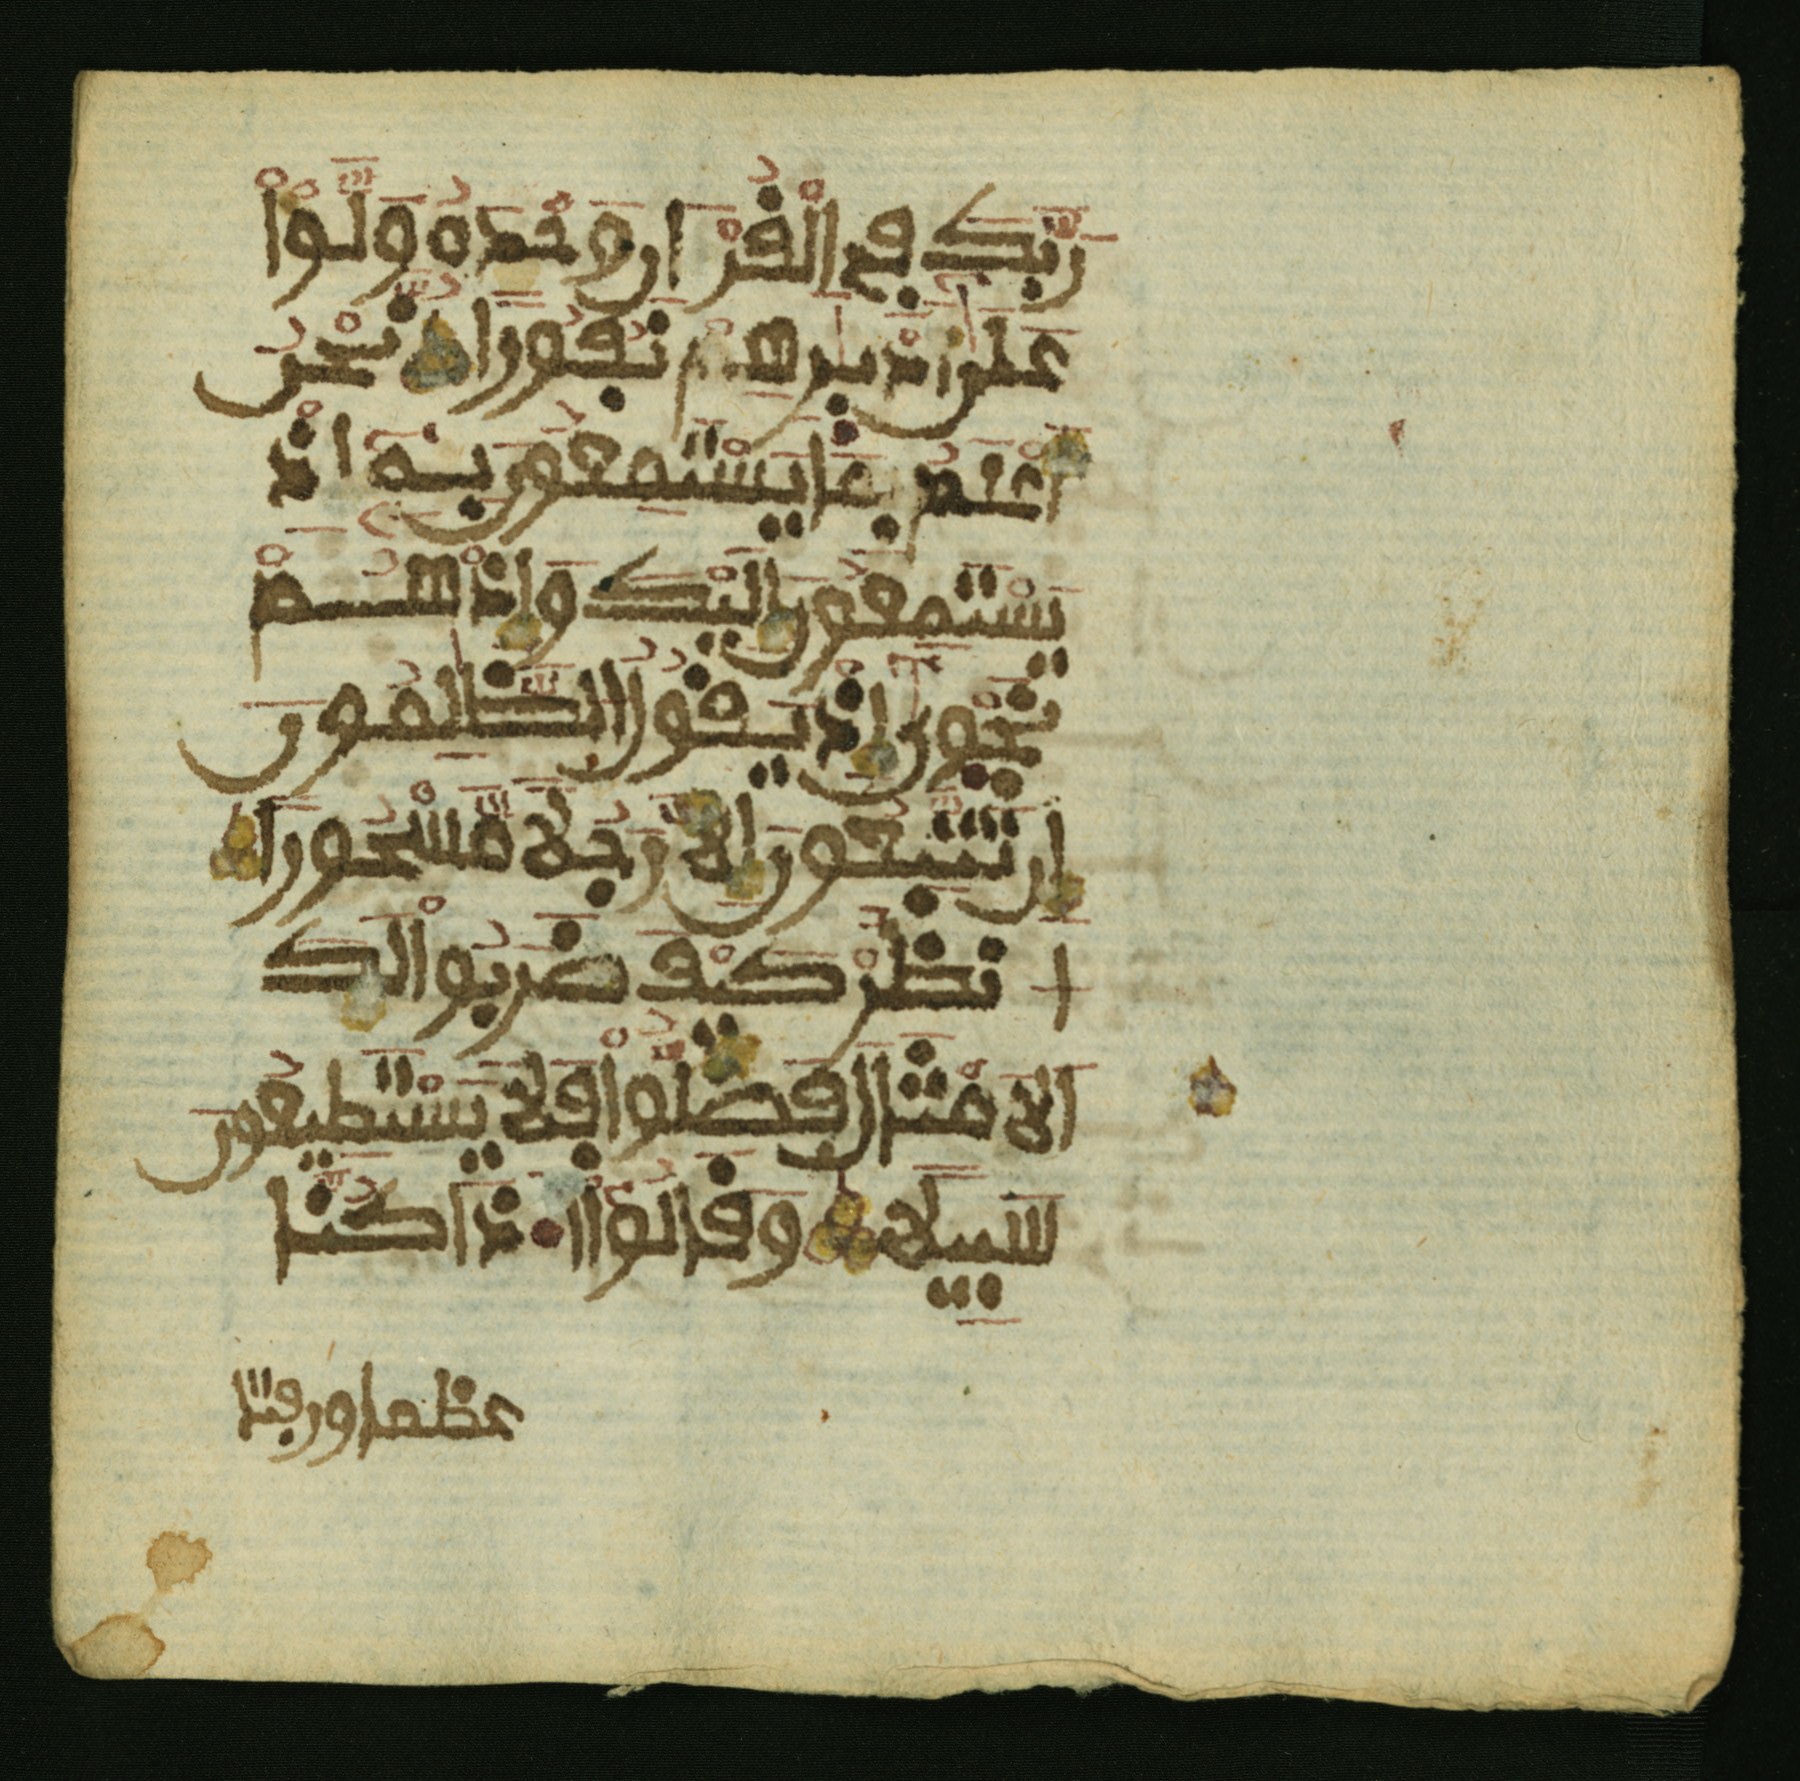 ربك في القران وحده ولوا
على ادبرهم نفورا نحن
اعلم بما يستمعون به اذ
يستمعون اليك واذ هم
نجوى اذ يقول الظلمون
ان تتبعون الا رجلا مسحورا
انظر كيف ضربوا لك
الامثال فضلوا فلا يستطيعون
سبيلا وقالوا اذا كنا
عظما ورفتا